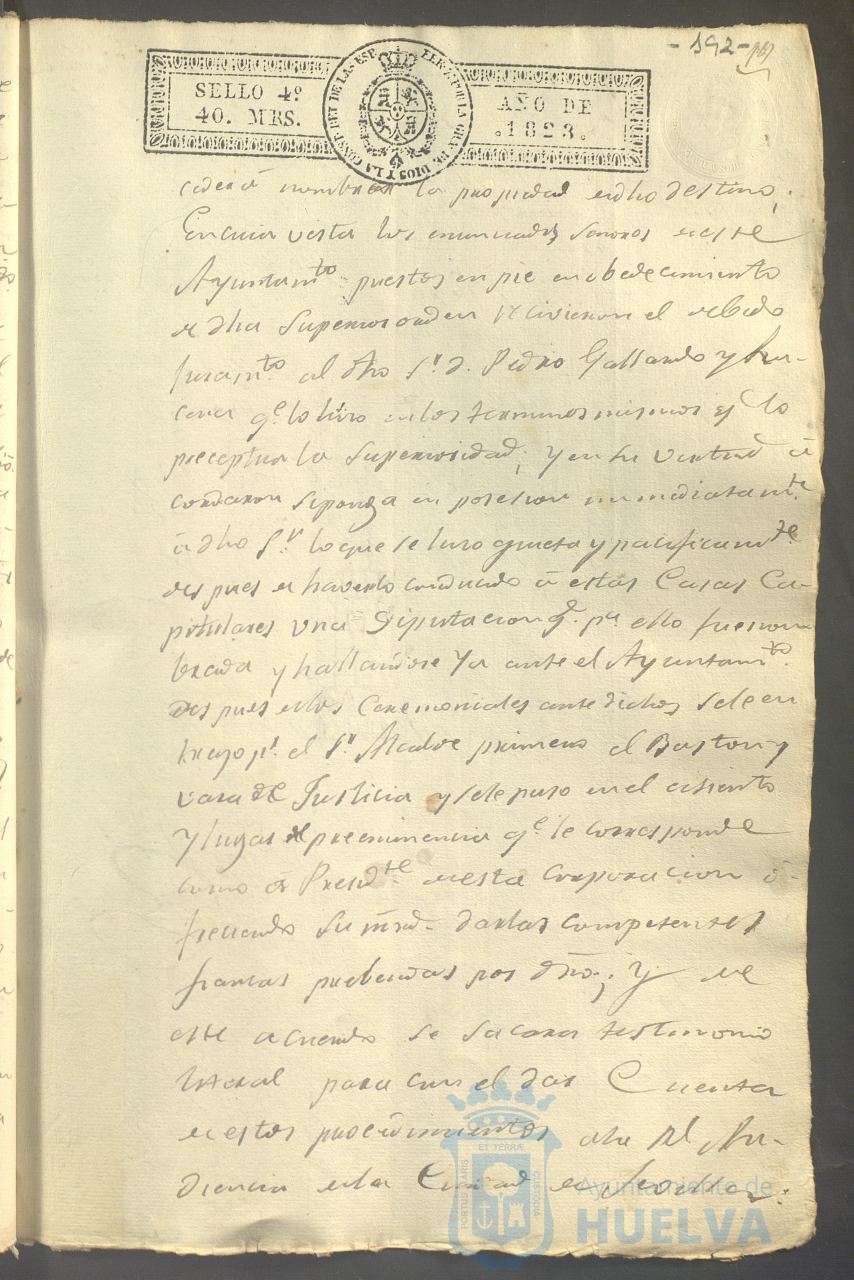 - 192 -
SELLO 4º
40. MRS.
FER. VII POR LA GRA. DE DIOS Y LA CONST. REY DE LAS ESP.
AÑO DE
.1823.
nombrar la propiedad en dho destino;
En cuia vista los enunciados Señores de este
Ayuntamto puestos en pie en obedecimiento
de dha Superior orden recivieron el debido
juramto al dho Sr. D. Pedro Gallardo y
qe lo hizo en los terminos mismos q lo
preceptua la Superioridad; y en su virtud a
cordaron se ponga en posesion inmediatamte
a dho Sr. lo que se hizo quieta y pacificamte
despues de haverlo conducido a estas Casas Ca-
pitulares una Diputacion q. pa ello fue nom
brada y hallandose ya ante el Ayuntamto.
despues de los Ceremoniales antedichos se le en
trego pr. el Sr. Alcalde primero el Baston y
vara de Justicia y se le puso en el asiento
y lugar de preeminencia qe. le corresponde
como a Presidte de esta Corporacion o-
freciendo su mrd. darlas competentes
fianzas prebenidas por dro.; Y de
este acuerdo se sacara testimonio
literal para con el dar Cuenta
de estos procedimientos a la Rl. Au-
diencia de la Ciudad de Sevilla.
PORTUS MARIS
ET TERRÆ
CUSTODIA
Ayuntamiento de
HUELVA